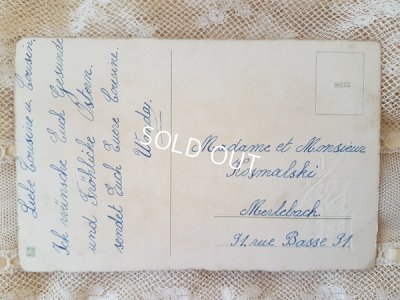 Liebe Cousine u. Cousin,
Ich wünsche Euch Gesunde
und Fröhliche Ostern.
sendet Euch Eure Cousine.
Wanda.
8033
Madame et Monsieur
Kosmalski
Merlebach
91. rue Basse 91.
SOLD OUT